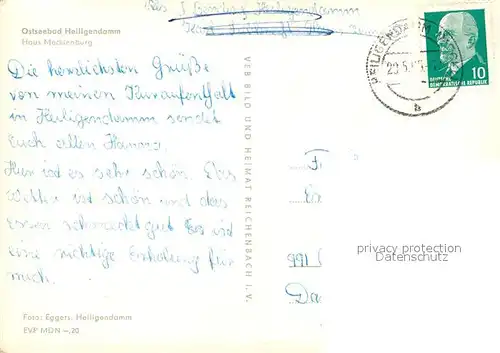 Ostseebad Heiligendamm
Haus Mecklenburg
Heiligendamm
HEILIGENDAMM
DEUTSCHE
DEMOKRATISCHE REPUBLIK
10
b
Die herzlichsten Grüße
von meinen Kuraufenthalt
in Heiligendamm sendet
Euch allen
Hier ist es sehr schön. Das
Wetter ist schön und das
essen schmeckt gut Es ist
eine richtige Erholung für
mich.
VEB BILD UND HEIMAT REICHENBACH I. V.
privacy protection
Datenschutz
991
Da
Foto: Eggers, Heiligendamm
EVP MDN -,20